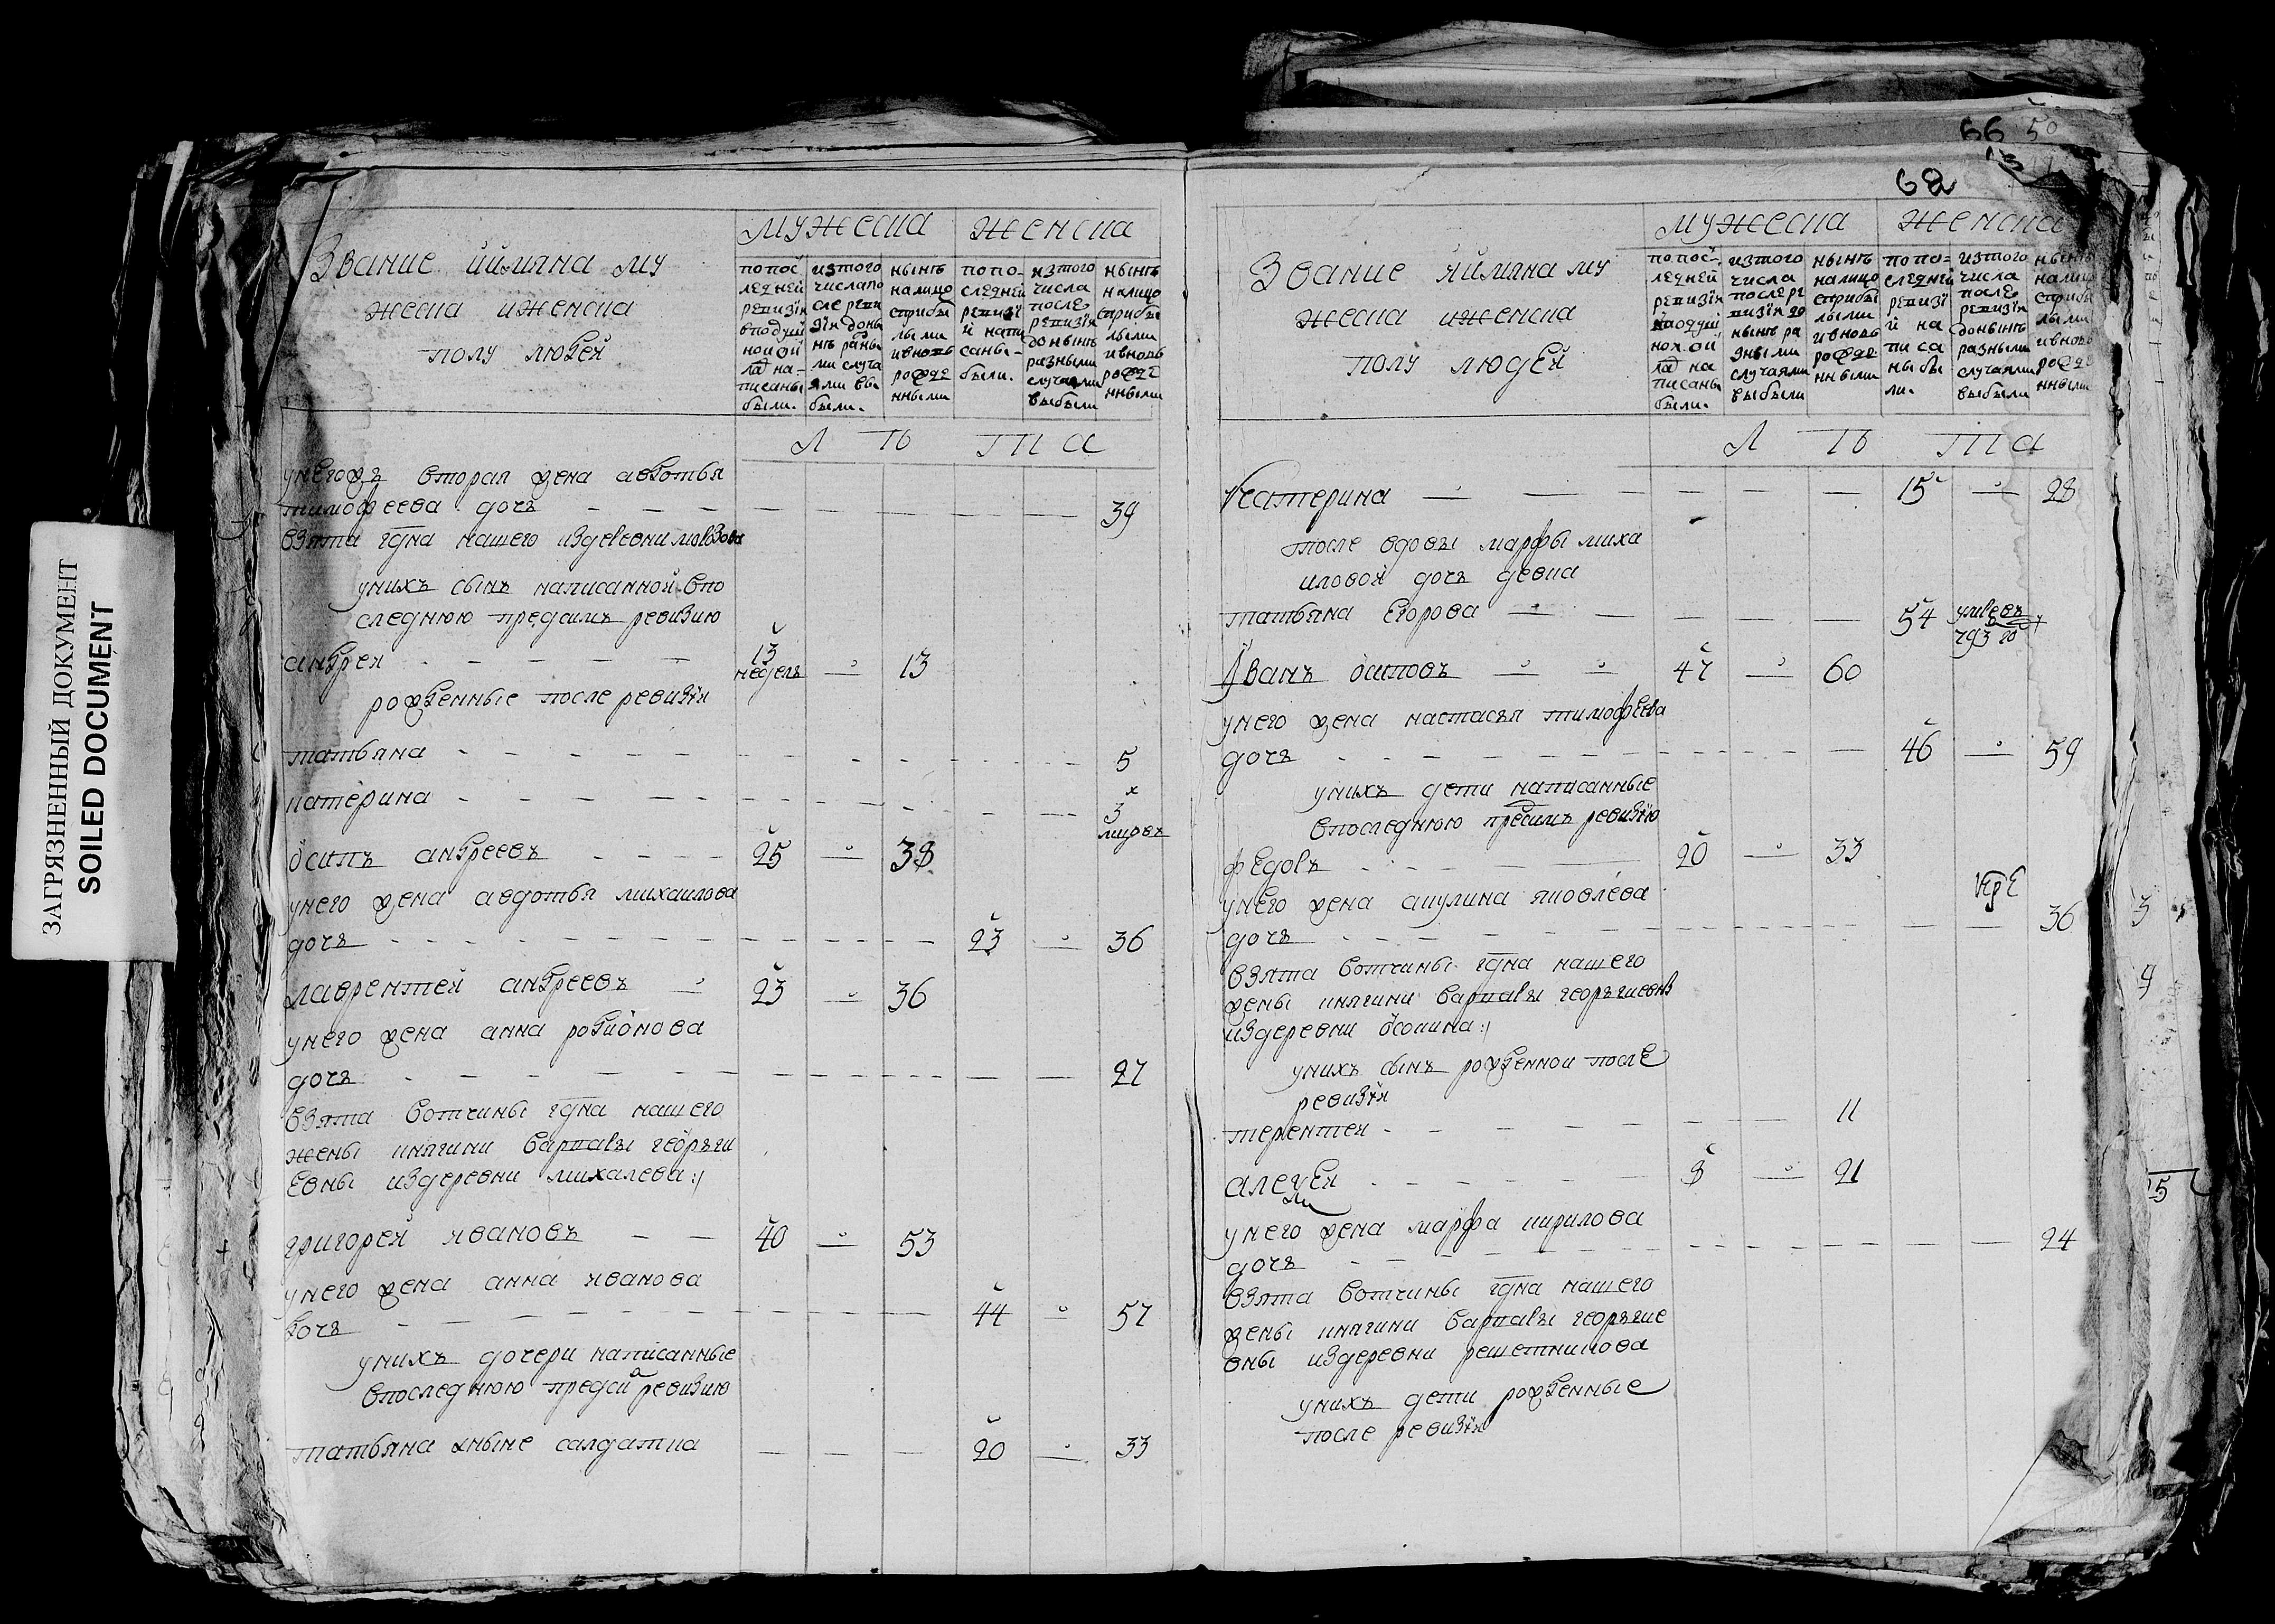 ЗАГРЯЗНЕННЫЙ ДОКУМЕНТ
SOILED DOCUMENT
Звание иимяна му
жеска иженска
полу людей
мужеска женска
попос
ледней
ревизïи
вподуш
ной ой
лад на-
писаны
были.
изтого
числапо
сле реви
зïи доны
нѣ разны
ми случа
ями вы
были.
нынѣ
налицо
сприбы
лыми
ивновь
рожде
нными
попо-
следней
ревизï
и напи
саны-
были.
изтого
числа
после
ревизïи
донынѣ
разными
случаями
выбыли
нынѣ
налицо
сприбы
лыми
ивновь
рожде
нными
Л Ѣ Т А
унегожъ вторая жена авдотья
тимофеева дочь 39
взята гдна нашего издеревни
унихъ сынъ написанной впо
следнюю предсимъ ревизию
андрей 13 недель 13
рожденные после ревизïи
татьяна 5
катерина 3
осипъ андреевъ 25 38
унего жена авдотья михаилова
дочь 23 36
лаврентей андреевъ 23 36
унего жена анна родионова
дочь 27
взята вотчины гдна нашего
жены княгини варвары георьги
евны издеревни михалева:/
григорей ивановъ 40 53
унего жена анна иванова
дочь 44 57
унихъ дочери написанные
впоследнюю предси ревизию
татьяна аныне салдатка 20 33
66 50
13
68
Звание иимяна му
жеска иженска
полу людей
мужеска женска
попос-
ледней
ревизïи
вподуш
ной ой
лад на
писаны
были.
изтого
числа
послере
визïи до
нынѣ ра
зными
случаями
выбыли
нынѣ
налицо
сприбы
лыми
ивновь
рожде
нными
попо-
следней
ревизï
и на
писа
ны бы
ли.
изтого
числа
после
ревизïи
донынѣ
разными
случаями
выбыли
нынѣ
налицо
сприбы
лыми
ивновь
рожде
нными
Л Ѣ Т А
Катерина 15 28
после вдовы марфы миха
иловой дочь девка
татьяна егорова 54
Иванъ осиповъ 47 60
унего жена настасья тимофеева
дочь 46 59
унихъ дети написанные
впоследнюю предсимъ ревизïю
федоръ 20 33
унего жена акулина яковлева
дочь 36
взята вотчины гдна нашего
жены княгини варвары георьгиевны
издеревни осокина:/
унихъ сынъ рожденной после
ревизïи
терентей 11
алексей 8 21
унего жена марфа кирилова
дочь 24
взята вотчины гдна нашего
жены княгини варвары георьгие
вны издеревни решетникова
унихъ дети рожденные
после ревизïи